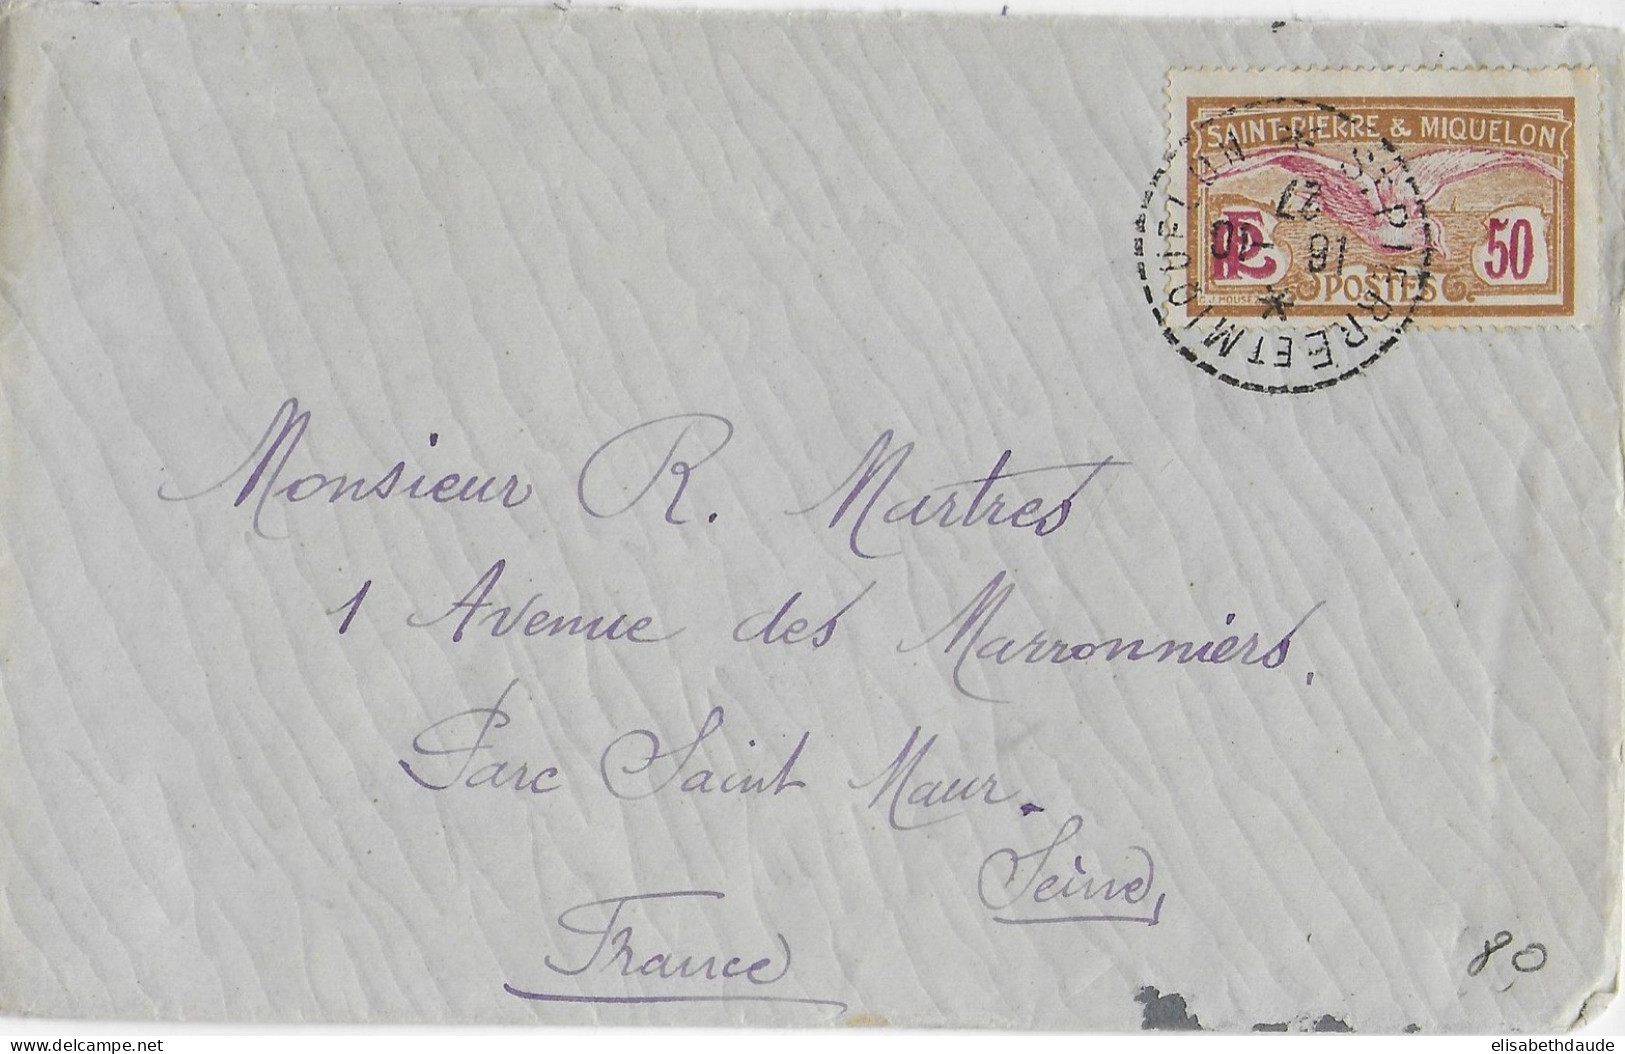 SAINT-PIERRE & MIQUELON
RF
50
POSTES
ST PIERRE ET MIQUELON
16
10
27
Monsieur R. Martres
1 Avenue des Marronniers,
Parc Saint Maur.
Seine,
France
80
www.delcampe.net
elisabethdaude